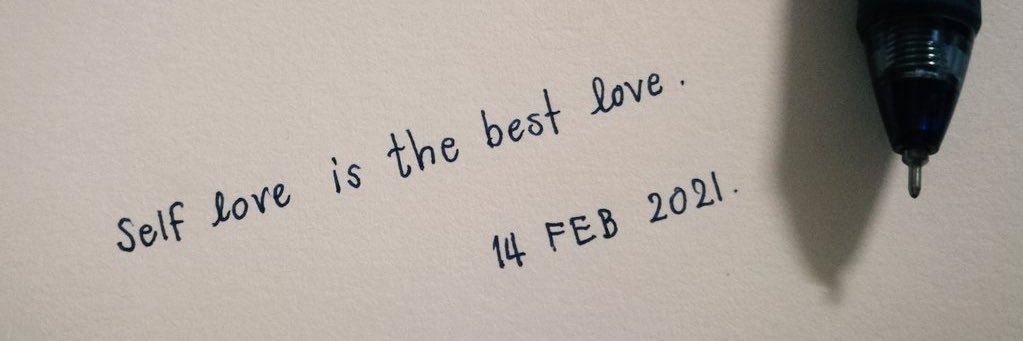 Self love is the best love.
14 FEB 2021.